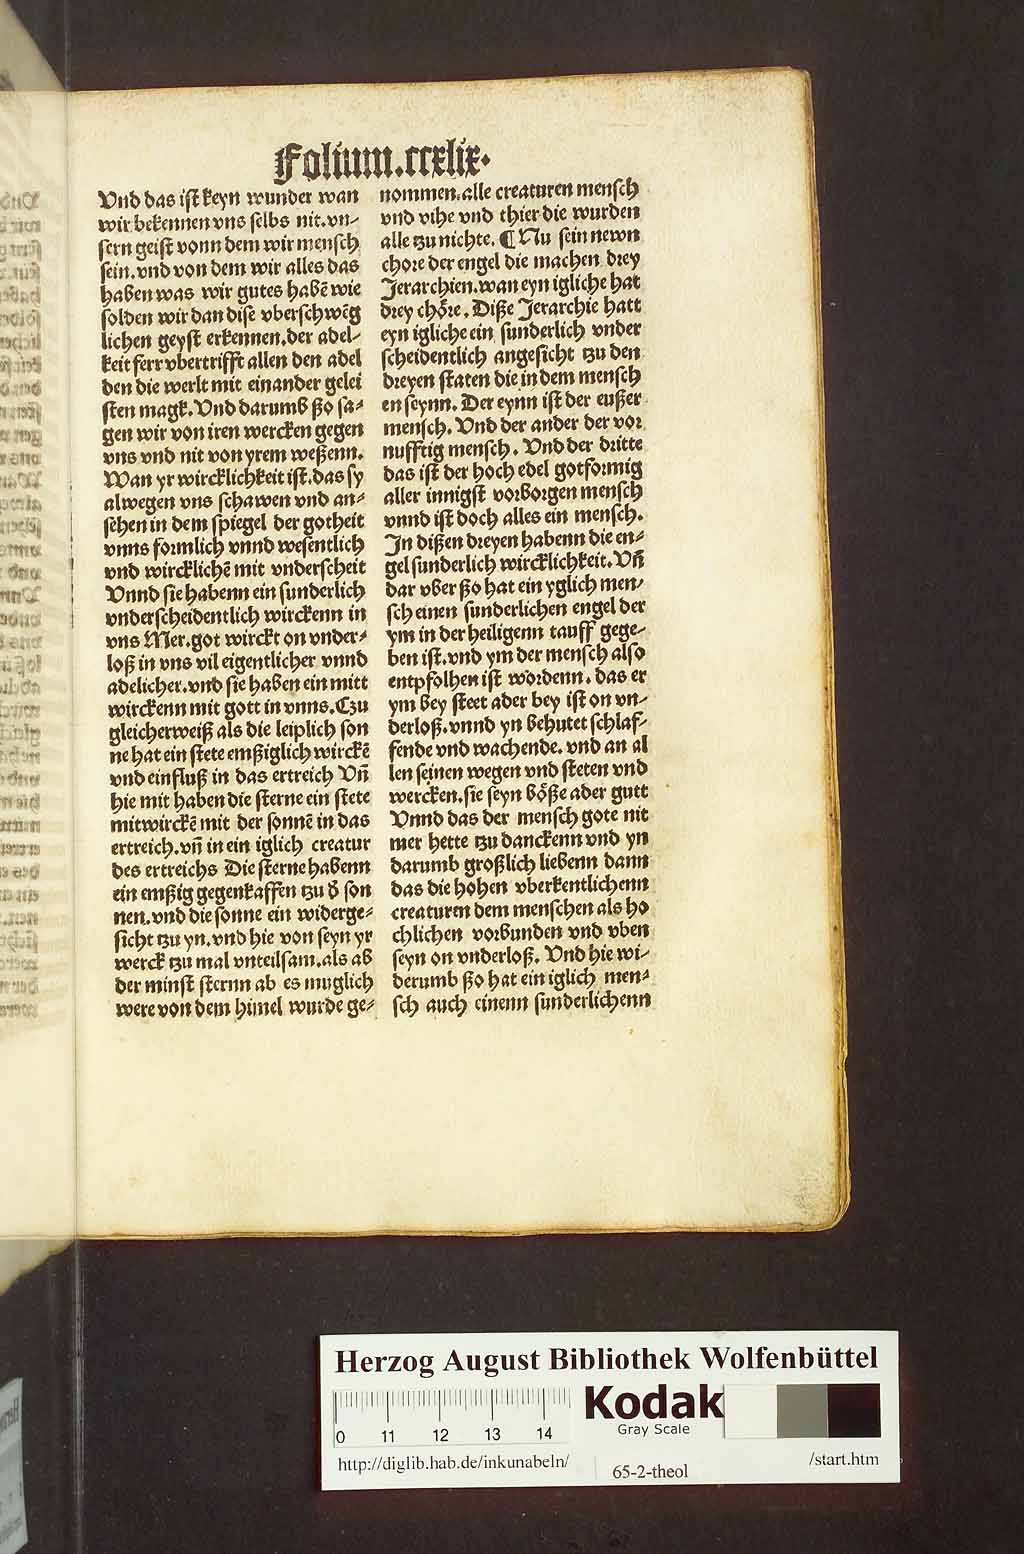 Folium.ccxlix.
Vnd das ist keyn wunder wan
wir bekennen vns selbs nit.vn-
sern geist vonn dem wir mensch
sein.vnd von dem wir alles das
haben was wir gutes habē wie
solden wir dan dise vberschwēg
lichen geyst erkennen.der adel-
keit ferr vbertrifft allen den adel
den die werlt mit einander gelei
sten magk.Vnd darumb ßo sa-
gen wir von iren wercken gegen
vns vnd nit von yrem weßenn.
Wan yr wircklichkeit ist.das sy
alwegen vns schawen vnd an-
sehen in dem spiegel der gotheit
vnns formlich vnnd wesentlich
vnd wircklichē mit vnderscheit
Vnnd sie habenn ein sunderlich
vnderscheidentlich wirckenn in
vns Mer.got wirckt on vnder-
loß in vns vil eigentlicher vnnd
adelicher.vnd sie haben ein mitt
wirckenn mit gott in vnns.Czu
gleicherweiß als die leiplich son
ne hat ein stete emßiglich wirckē
vnd einfluß in das ertreich Vn̄
hie mit haben die sterne ein stete
mitwirckē mit der sonnē in das
ertreich.vn̄ in ein iglich creatur
des ertreichs Die sterne habenn
ein emßig gegenkaffen tzu d̄ son
nen.vnd die sonne ein widerge-
sicht tzu yn.vnd hie von seyn yr
werck tzu mal vnteilsam.als ab
der minst sternn ab es muglich
were von dem himel wurde ge-
nommen.alle creaturen mensch
vnd vihe vnd thier die wurden
alle tzu nichte. ¶ Nu sein newn
chore der engel die machen drey
Jerarchien.wan eyn igliche hat
drey chöre. Diße Jerarchie hatt
eyn igliche ein sunderlich vnder
scheidentlich angesicht tzu den
dreyen staten die in dem mensch
en seynn. Der eynn ist der eußer
mensch. Vnd der ander der vor
nufftig mensch. Vnd der dritte
das ist der hoch edel gotformig
aller innigst vorborgen mensch
vnnd ist doch alles ein mensch.
In dißen dreyen habenn die en-
gel sunderlich wircklichkeit. Vn̄
dar vber ßo hat ein yglich men-
sch einen sunderlichen engel der
ym in der heiligenn tauff gege-
ben ist.vnd ym der mensch also
entpfolhen ist wordenn. das er
ym bey steet ader bey ist on vn-
derloß.vnnd yn behutet schlaf-
fende vnd wachende. vnd an al
len seinen wegen vnd steten vnd
wercken.sie seyn böße ader gutt
Vnnd das der mensch gote nit
mer hette tzu danckenn vnd yn
darumb großlich liebenn dann
das die hohen vberkentlichenn
creaturen dem menschen als ho
chlichen vorbunden vnd vben
seyn on vnderloß. Vnd hie wi-
derumb ßo hat ein iglich men-
sch auch einenn sunderlichenn
Herzog August Bibliothek Wolfenbüttel
0 11 12 13 14
Kodak
Gray Scale
http://diglib.hab.de/inkunabeln/
65-2-theol
/start.htm